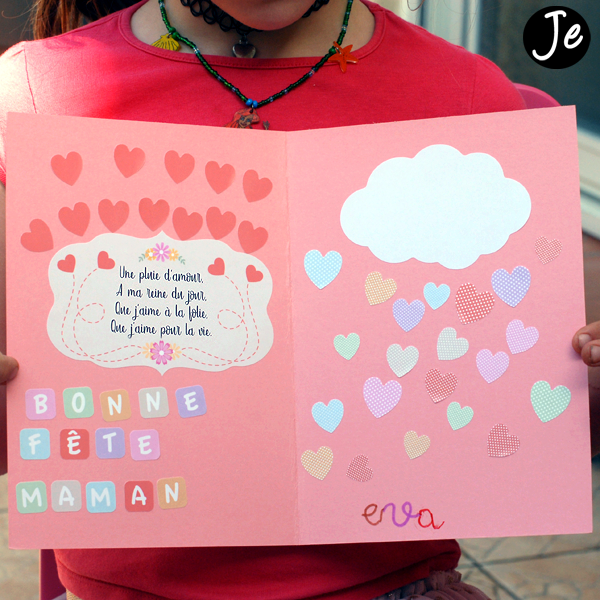 Je
Une pluie d'amour,
A ma reine du jour,
Que j'aime à la folie,
Que j'aime pour la vie.
BONNE
FÊTE
MAMAN
eva